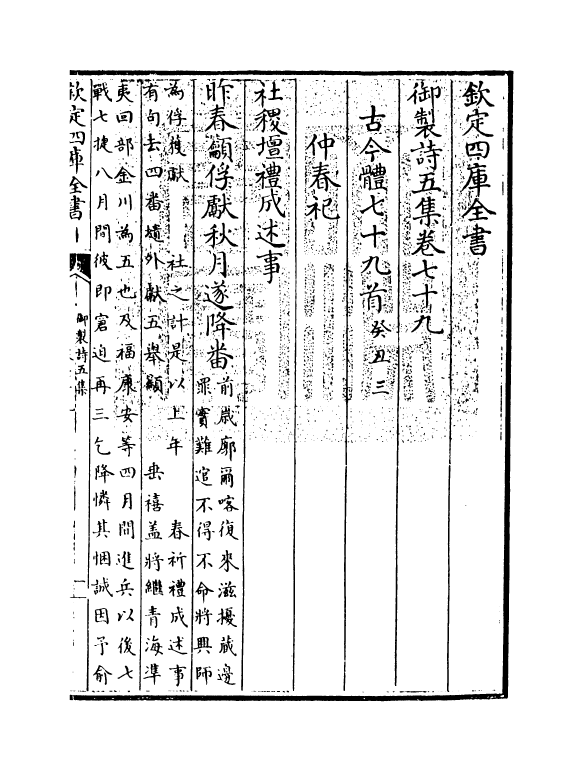 欽定四庫全書
御製詩五集卷七十九
古今體七十九首 癸丑三
仲春祀
社稷壇禮成述事
昨春籲俘獻秋月遂降番
前歲廓爾喀復來滋擾藏邊
罪實難逭不得不命將興師
為俘獲獻 社之計是以上年 春祈禮成述事
有句去四番墉外獻五舉 垂禧蓋將繼青海準
夷回部金川為五也及福康安等四月間進兵以後七
戰七捷八月間彼即窘迫再三乞降憐其悃誠因予俞
欽定四庫全書
御製詩五集